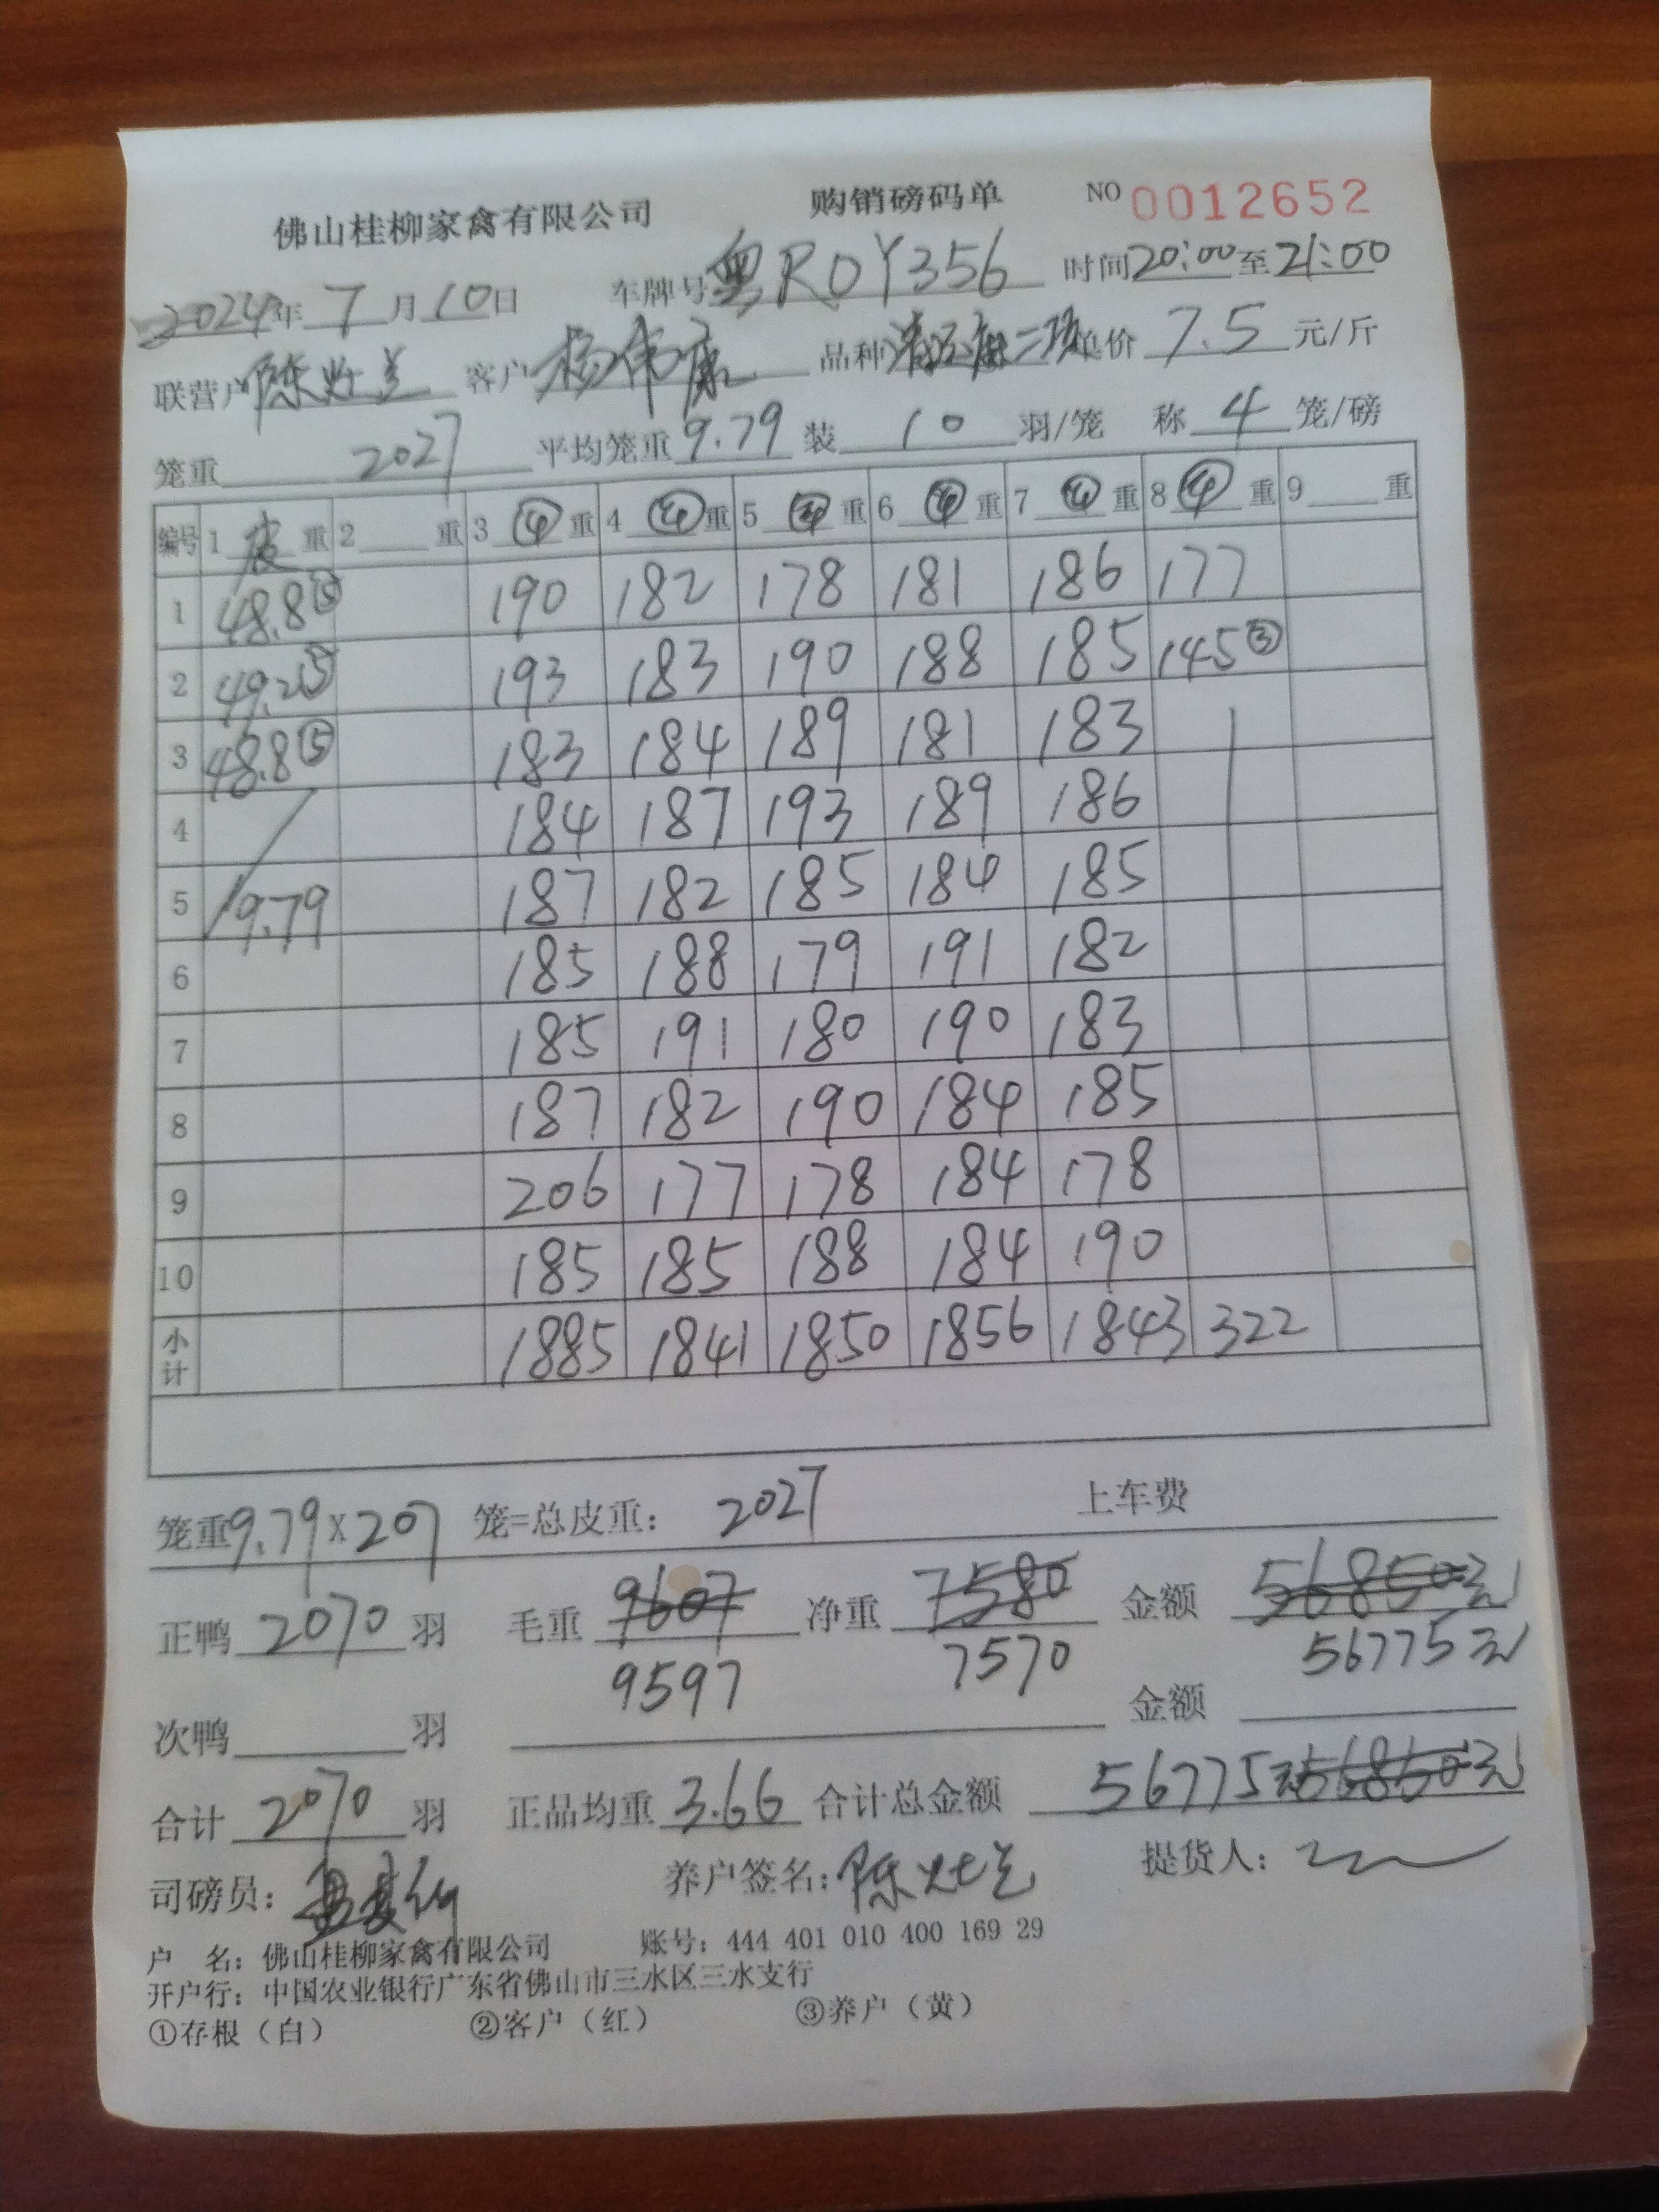 佛山桂柳家禽有限公司 购销磅码单 NO 0012652
2024年 7 月 10 日 车牌号 粤R0Y356 时间 20:00 至 21:00
联营户 陈灶兰 客户 杨伟康 品种 二项 单价 7.5 元/斤
笼重 2027 平均笼重 9.79 装 10 羽/笼 称 4 笼/磅
编号 1 皮 重 2 重 3 ④ 重 4 ④ 重 5 ④ 重 6 ④ 重 7 ④ 重 8 ④ 重 9 重
1 48.8⑤ 190 182 178 181 186 177
2 49.2⑤ 193 183 190 188 185 145③
3 48.8⑤ 183 184 189 181 183
4 184 187 193 189 186
5 9.79 187 182 185 184 185
6 185 188 179 191 182
7 185 191 180 190 183
8 187 182 190 184 185
9 206 177 178 184 178
10 185 185 188 184 190
小计 1885 1841 1850 1856 1843 322
笼重 9.79 X 207 笼=总皮重: 2027 上车费
正鸭 2070 羽 毛重 9607 净重 7580 金额 56850元
9597 7570 56775元
次鸭 羽 金额
合计 2070 羽 正品均重 3.66 合计总金额 56775元 56850元
司磅员: 养户签名: 陈灶兰 提货人:
户 名: 佛山桂柳家禽有限公司 账号: 444 401 010 400 169 29
开户行: 中国农业银行广东省佛山市三水区三水支行
①存根（白） ②客户（红） ③养户（黄）